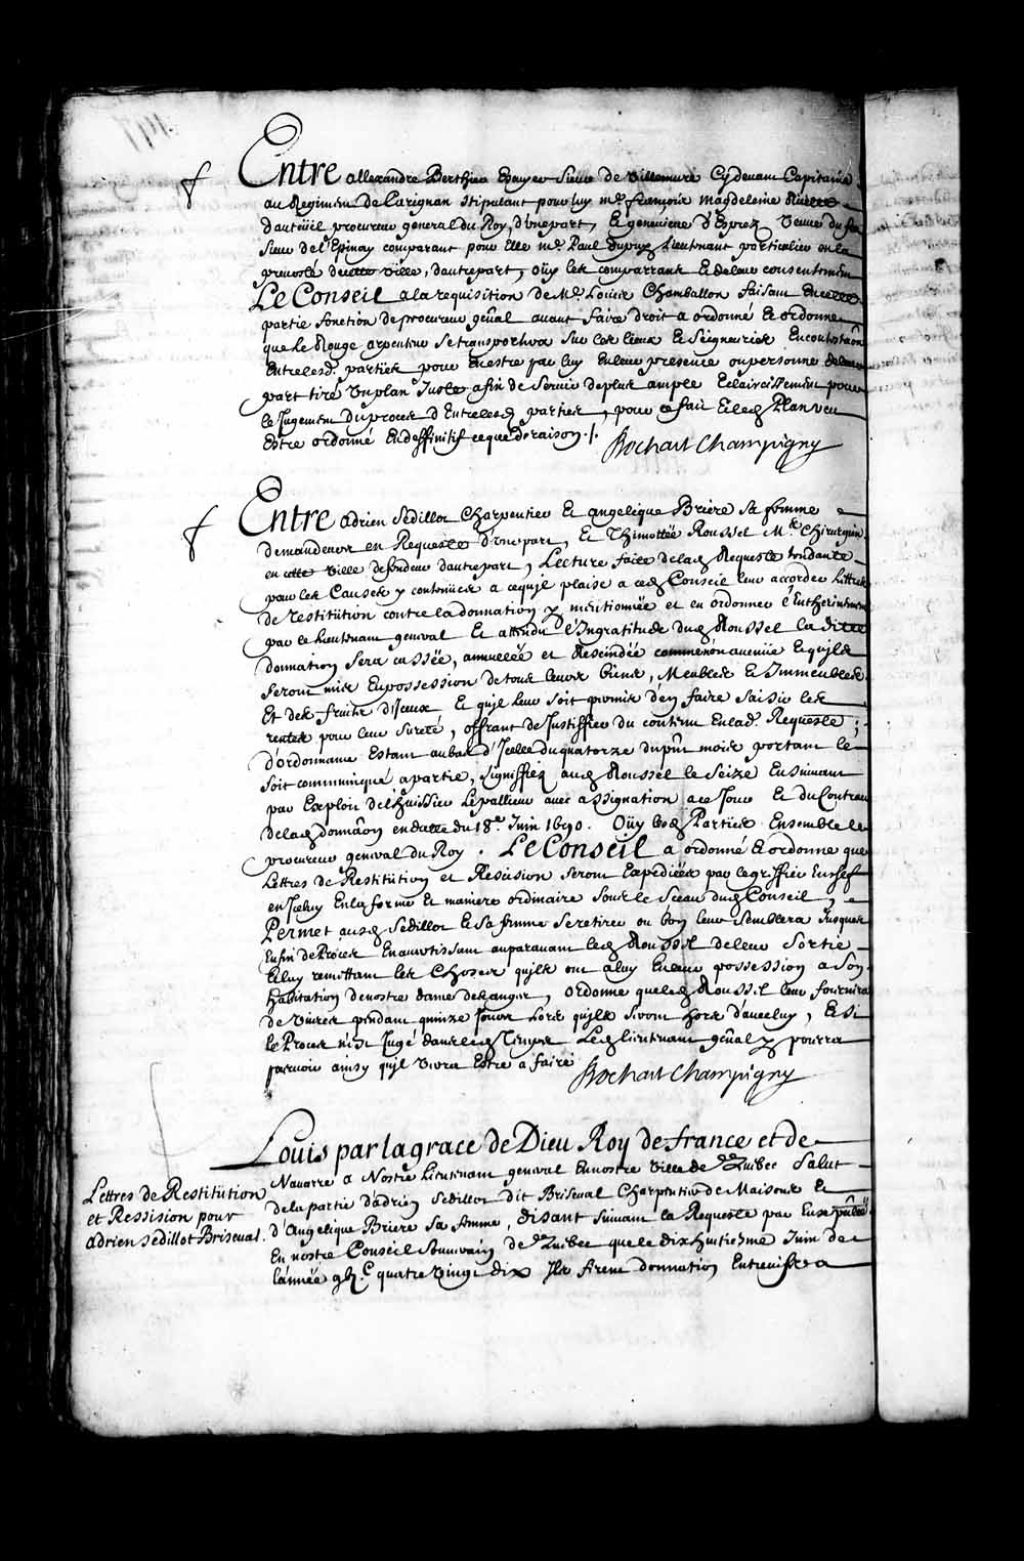 Entre allexandre Berthier Escuyer Sieur de Villemure Cydevant Capitaine
au Regiment de Carignan stipulant pour luy Me françois magdeleine Ruette
dauteüil procureur general du Roy, d'une part, Et geneviene d'Esprez Veuve du feu
Sieur de l'Epinay comparant pour Elle Me Paul Dupuy Lieutenant particulier en la
prevosté de cette ville, dautre part, oüy les comparrans Et de leur consentement
Le Conseil a la requisition de Me Louis Chamballon faisant En cette
partie fonction de procureur gñal avant faire droit a ordonné Et ordonne
que Le Rouge arpenteur se transportera sur les lieux Et Seigneuries En contestaõn
Entre lesd. parties pour En estre par luy En leur presence ou personne de leur
part tiré Un plan Juste afin de servir de plus ample Eclaircissement pour
le Jugement du procez d'Entre lesd parties, pour ce fait Et led Plan veu
Estre ordonné En deffinitif ce que de raison ./.
Bochart Champigny
Entre adrien Sedillot Charpentier Et angelique Briere sa femme
demandeurs en Requeste d'une part, Et Thimottée Roussel Me Chirurgien
en cette ville defendeur dautre part, Lecture faite de lad Requeste tendante
pour les Causes y contenües a ce qu'il plaise a ced Conseil leur accorder Lettres
de restitution contre la donnation y mentionnée et en ordonner l'Entherinement
par le lieutenant general Et attendu l'Ingratitude dud Roussel la ditte
donnation sera cassée, annullée et Rescindée comme non avenüe Et qu'ils
seront mis En possession de tous leurs biens, Meubles Et Immeubles
Et des fruits d'Iceux Et qu'il leur soit permis d'en faire saisir les
rentes pour leur sureté, offrant de Justiffier du contenu En lad. Requeste;
d'ordonnance Estant au bas d'Icelle du quatorze du pñt mois portant le
soit communiqué a partie, signiffiez aud Roussel le seize Ensuivant
par Exploit de l'huissier Lepallieur avec assignation a ce Jour Et du Contract
de lad donnãon en datte du 18e. Juin 1690. Oüy lesd Parties Ensemble le
procureur general du Roy. Le Conseil a ordonné Et ordonne que
Lettres de Restitution et Rescision seront Expediées par le greffier En chef
en Iceluy En la forme Et maniere ordinaire sous le sceau dud Conseil,
Permet ausd Sedillot Et sa femme se retirer ou bon leur semblera Jusques
En fin de Procez En avertissant auparavant led Roussel de leur sortie
Et luy remettant les choses qu'ils ont a luy En leur possession a son
habitation de nostre dame des anges, ordonne que led Roussel leur fournira
de vivres pendant quinze Jours lors qu'ils seront hors d'avec luy, Et si
le Procez n'est Jugé dans led Temps Led lieutenant gñal y pourra
pourvoir ainsy qu'il verra Estre a faire
Bochart Champigny
Louis par la grace de Dieu Roy de france et de
Navarre a Nostre Lieutenant general En nostre ville de Quebec Salut
Lettres de Restitution
et Ressision pour
adrien Sedillot Briseval.
de la partie d'adrien Sedillot dit Briseval Charpentier de Maisons Et
d'Angelique Briere sa femme, disant suivant la Requeste par Eux
En nostre Conseil Souverain de Quebec que le dix huitiesme Juin de
l'année gbj.C quatre vingt dix Ils firent donnation Entrevifs a